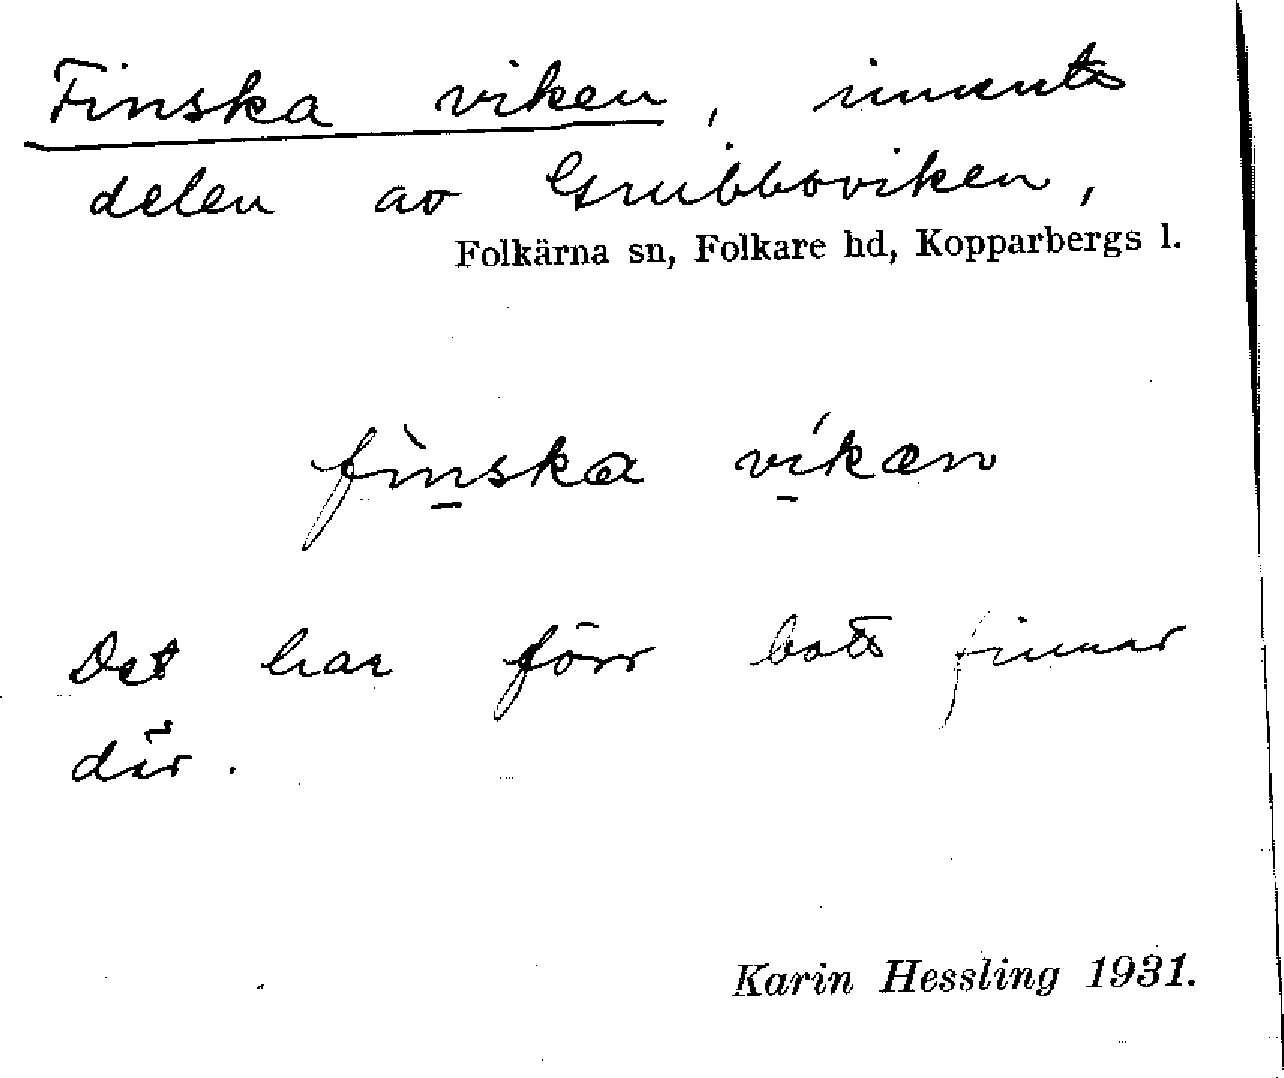 Finska viken, innersta
delen av Grubboviken,
Folkärna sn, Folkare hd, Kopparbergs l.
fìnska víkæn
Det har förr bott finnar
där.
Karin Hessling 1931.